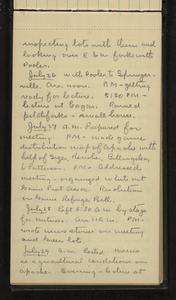 inspecting lots with them and
looking over E. & W. forks with
Pooler.
July 26 with Pooler to Springer-
ville. Arr. noon. P.M. - getting
ready for lecture. 8:30 P.M. -
lecture at Eagar. Rained
pitchforks - small house.
July 27 A.M. Prepared for
meeting. P.M. - made game
distribution map of Apache with
help of
& Patterson. P.M. - Addressed
meeting - organized White Mt
Game Prot Assoc. Resolution
on Game Refuge Bill.
July 28 Left 5:30 A.M. by stage
for Holbrook. Arr 11 A.M. P.M. -
wrote news stories on meeting
and Game lots.
July 29 A.M. Rested. Memo
on agricultural conditions on
Apache. Evening - Lecture at